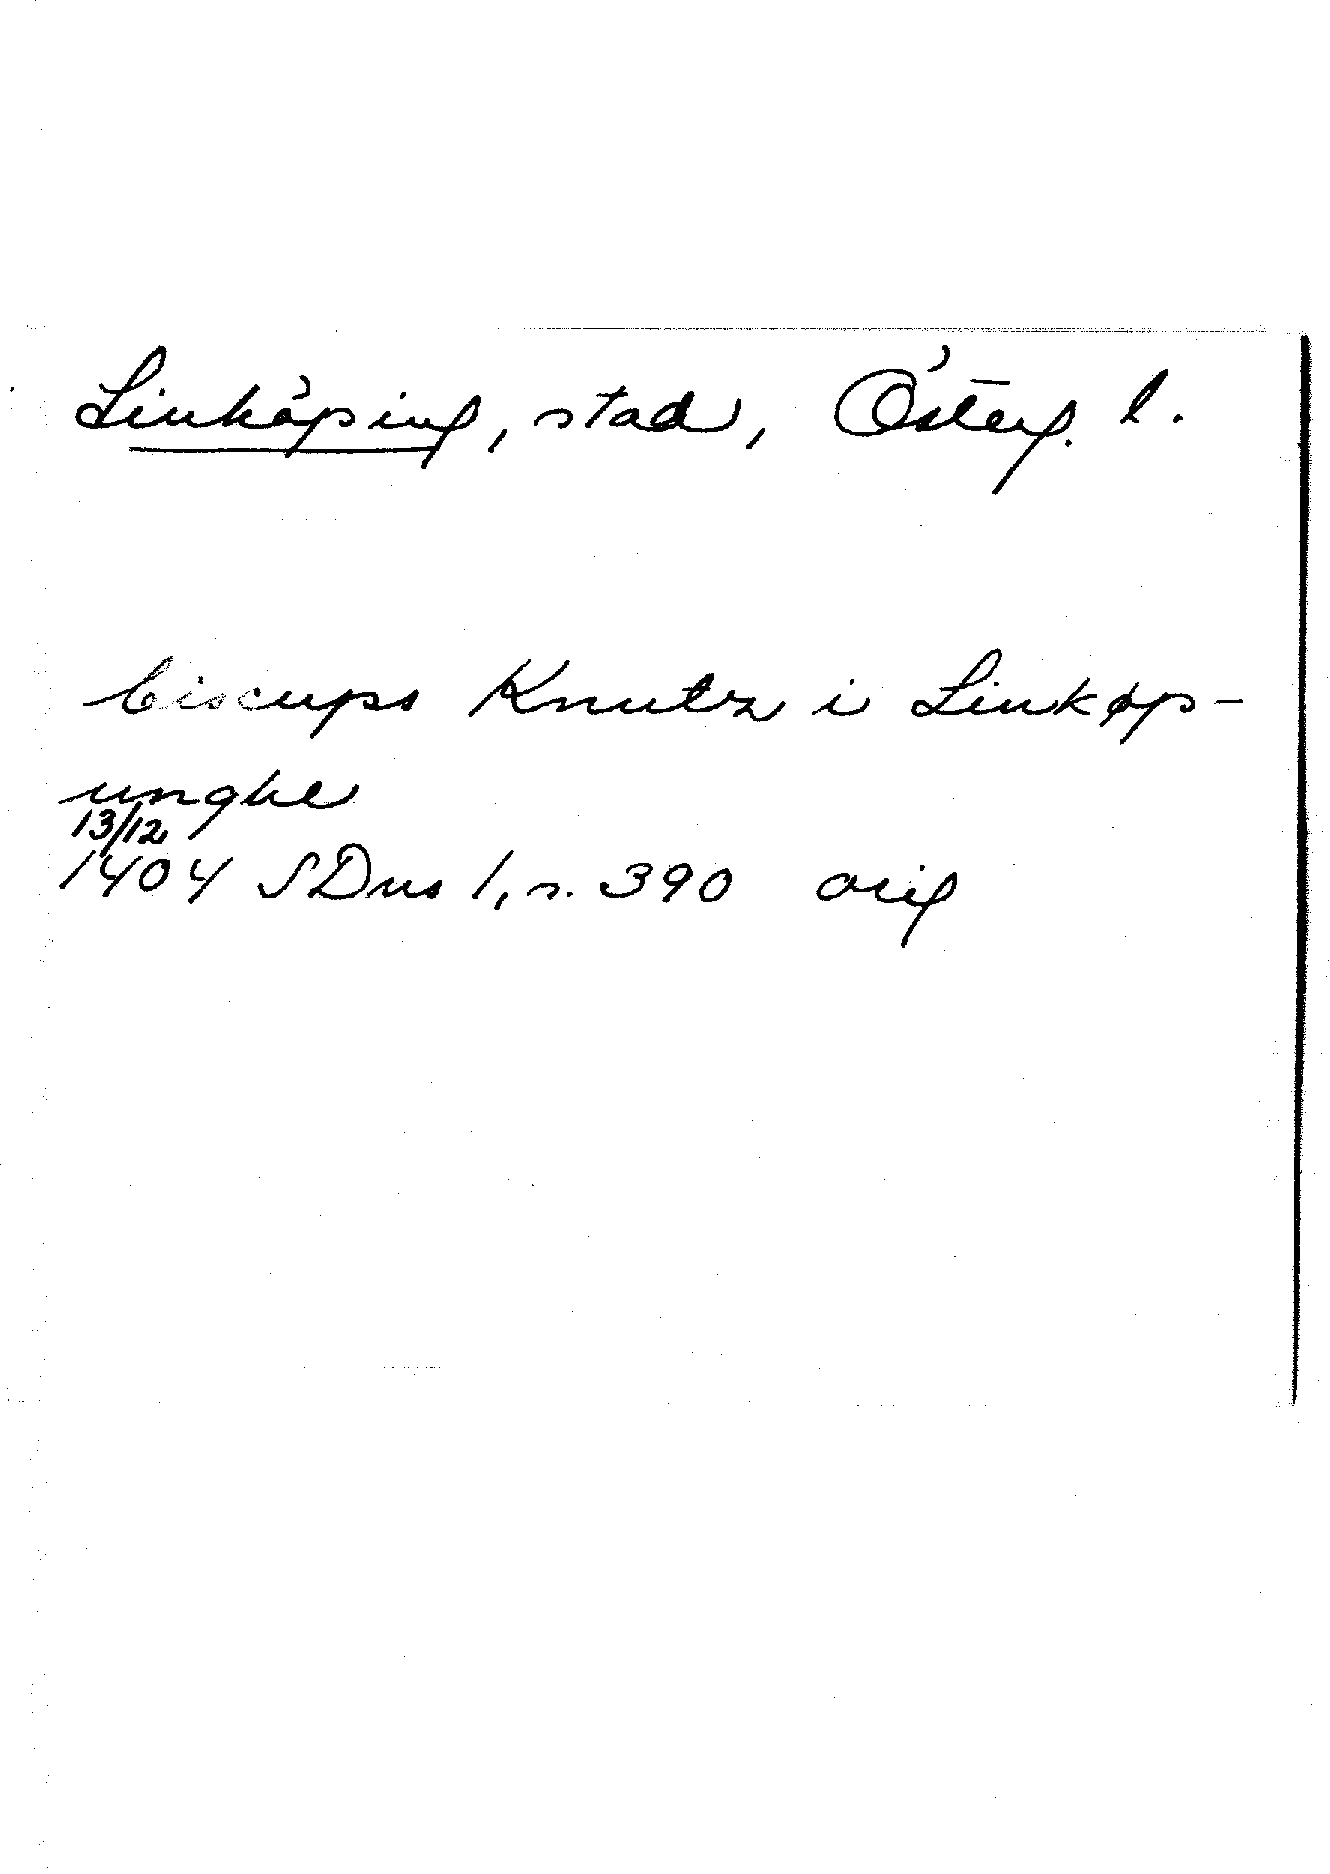 Linköping, stad, Österg. l.
biscups Knutz i Linkøp-
unghe
13/12
1404 SDns 1, n. 390 orig